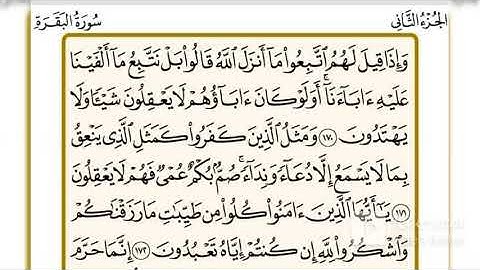 الجزء الثاني سورة البقرة
وَإِذَا قِيلَ لَهُمُ ٱتَّبِعُوا۟ مَآ أَنزَلَ ٱللَّهُ قَالُوا۟ بَلْ نَتَّبِعُ مَآ أَلْفَيْنَا
عَلَيْهِ ءَابَآءَنَآ ۗ أَوَلَوْ كَانَ ءَابَآؤُهُمْ لَا يَعْقِلُونَ شَيْـًٔا وَلَا
يَهْتَدُونَ ١٧٠ وَمَثَلُ ٱلَّذِينَ كَفَرُوا۟ كَمَثَلِ ٱلَّذِى يَنْعِقُ
بِمَا لَا يَسْمَعُ إِلَّا دُعَآءً وَنِدَآءً ۚ صُمٌّۢ بُكْمٌ عُمْىٌ فَهُمْ لَا يَعْقِلُونَ
١٧١ يَـٰٓأَيُّهَا ٱلَّذِينَ ءَامَنُوا۟ كُلُوا۟ مِن طَيِّبَـٰتِ مَا رَزَقْنَـٰكُمْ
وَٱشْكُرُوا۟ لِلَّهِ إِن كُنتُمْ إِيَّاهُ تَعْبُدُونَ ١٧٢ إِنَّمَا حَرَّمَ